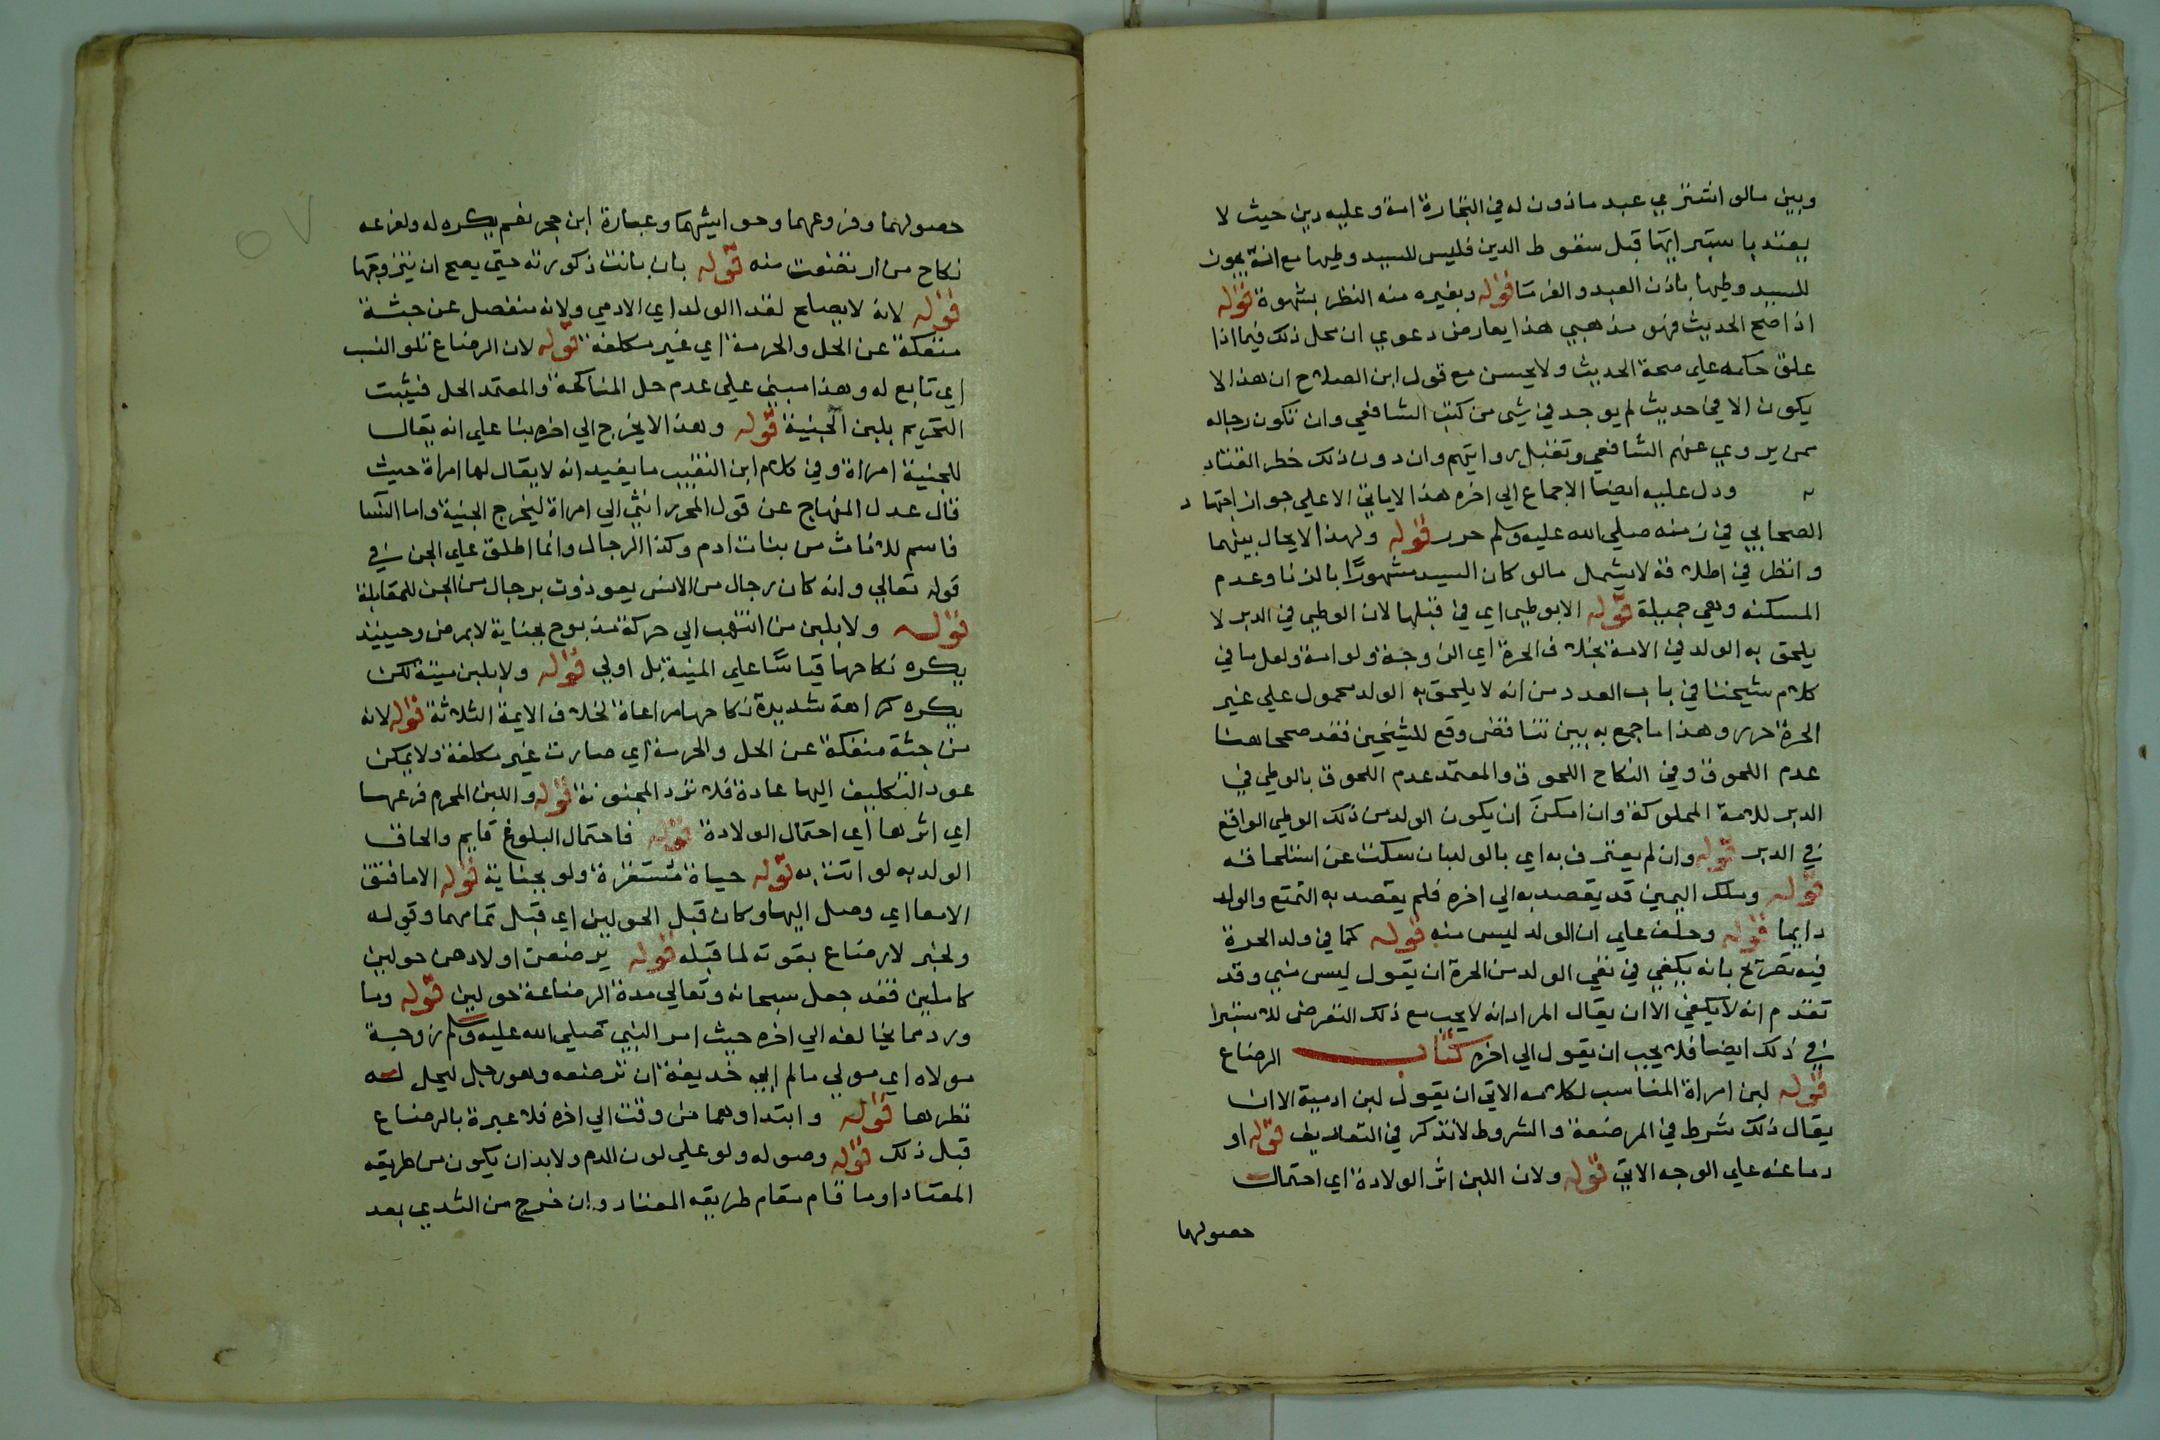 وبين مالو اشتري عبد ماذون له في التجارة امة وعليه دين حيث لا
يعتد باستبرايها قبل سقوط الدين فليس للسيد وطيها مع انه يجوز
للسيد وطيها باذن العبد والغرما قوله وبغيره منه النظر بشهوة قوله
اذا صح الحديث فهو مذهبي هذا يعارض دعوي ان محل ذلك فيما اذا
علق حكمه علي صحة الحديث ولا يحسن مع قول ابن الصلاح ان هذا لا
يكون الا في حديث لم يوجد في شي من كتب الشافعي وان تكون رجاله
ممن يروي عنهم الشافعي وتقبل روايتهم وان دون ذلك خطر القتاد
ودل عليه ايضا الاجماع الي اخره هذا لاياتي الا علي جواز اجتهاد
الصحابي في زمنه صلي الله عليه وسلم حرر قوله ولهذا لا يحال بينهما
وانظر في اطلاقه لا يشمل مالو كان السيد مشهورا بالزنا وعدم
المسكنه وهي جميلة قوله الا بوطي اي في قبلها لان الوطي في الدبر لا
يلحق به الولد في الامة بخلاف الحرة اي الزوجة ولو امة ولعل ما في
كلام شيخنا في باب العدد من انه لا يلحق به الولد محمول علي غير
الحرة حرر وهذا ما جمع به بين تناقض وقع للشيخين فقد صححا هنا
عدم اللحوق وفي النكاح اللحوق والمعتمد عدم اللحوق بالوطي في
الدبر للامة المملوكة وان امكن ان يكون الولد من ذلك الوطي الواقع
في الدبر قوله وان لم يعترف به اي بالولد بان سكت عن استلحاقه
قوله وملك اليمين قد يقصد به الي اخره فلم يقصد به التمتع والولد
دايما قوله وحلف علي ان الولد ليس منه قوله كما في ولد الحرة
فيه تصريح بانه يكفي في نفي الولد من الحرة ان يقول ليس مني وقد
تقدم انه لا يكفي الا ان يقال المراد انه لا يجب مع ذلك التعرض للاستبرا
في ذلك ايضا فلا يجب ان يقول الي اخره كتاب الرضاع
قوله لبن امراة المناسب لكلامه الاتي ان يقول لبن ادمية الا ان
يقال ذلك شرط في المرضعة والشروط لا تذكر في التعاريف قوله او
دماغه علي الوجه الاتي قوله ولان اللبن اثر الولادة اي احتمال
حصولهما
حصولهما وفروعهما وحواشيهما وعبارة ابن حجر نعم يكره له ولفرعه
نكاح من ارتضعت منه قوله بان بانت ذكورته حتي يصح ان يتزوجها
قوله لانه لا يصلح لغذا الولد اي الادمي ولانه منفصل عن جثة
منفكة عن الحل والحرمة اي غير مكلفة قوله لان الرضاع تلو النسب
اي تابع له وهذا مبني علي عدم حل المناكحة والمعتمد الحل فيثبت
التحريم بلبن الجنية قوله وهذا لا يخرج الي اخره بنا علي انه يقال
للجنية امراة وفي كلام ابن النقيب ما يفيد انه لا يقال لها امراة حيث
قال عدل المنهاج عن قول المحرر انثي الي امراة ليخرج الجنية واما النسا
فاسم للاناث من بنات ادم وكذا الرجال وانما اطلق علي الجن في
قوله تعالي وانه كان رجال من الانس يعوذون برجال من الجن للمقابلة
قوله ولا بلبن من انتهت الي حركة مذبوح بجناية لا بمرض وحينيذ
يكره نكاحها قياسا علي الميتة بل اولي قوله ولا بلبن ميتة لكن
يكره كراهة شديدة نكاحها مراعاة لخلاف الايمة الثلاثة قوله لانه
من جثة منفكة عن الحل والحرمة اي صارت غير مكلفة ولا يمكن
عود التكليف اليها عادة فلا ترد المجنونة قوله واللبن المحرم فرعها
اي اثرها اي احتمال الولادة قوله فاحتمال البلوغ قايم والحاق
الولد به لو اتت به قوله حياة مستقرة ولو بجناية قوله الا ما فتق
الامعا اي وصل اليها وكان قبل الحولين اي قبل تمامهما وقوله
ولخبر لا رضاع بقوته لما قبله قوله يرضعن اولادهن حولين
كاملين فقد جعل سبحانه وتعالي مدة الرضاعة حولين قوله وما
ورد مما يخالفه الي اخره حيث امر النبي صلي الله عليه وسلم زوجة
مولاه اي مولي سالم ابي حذيفة ان ترضعه وهو رجل ليحل له
نظرها قوله وابتداوهما من وقت الي اخره فلا عبرة بالرضاع
قبل ذلك قوله وصوله ولو علي لون الدم ولا بد ان يكون من طريقه
المعتاد او ما قام مقام طريقه المعتاد وان خرج من الثدي بعد